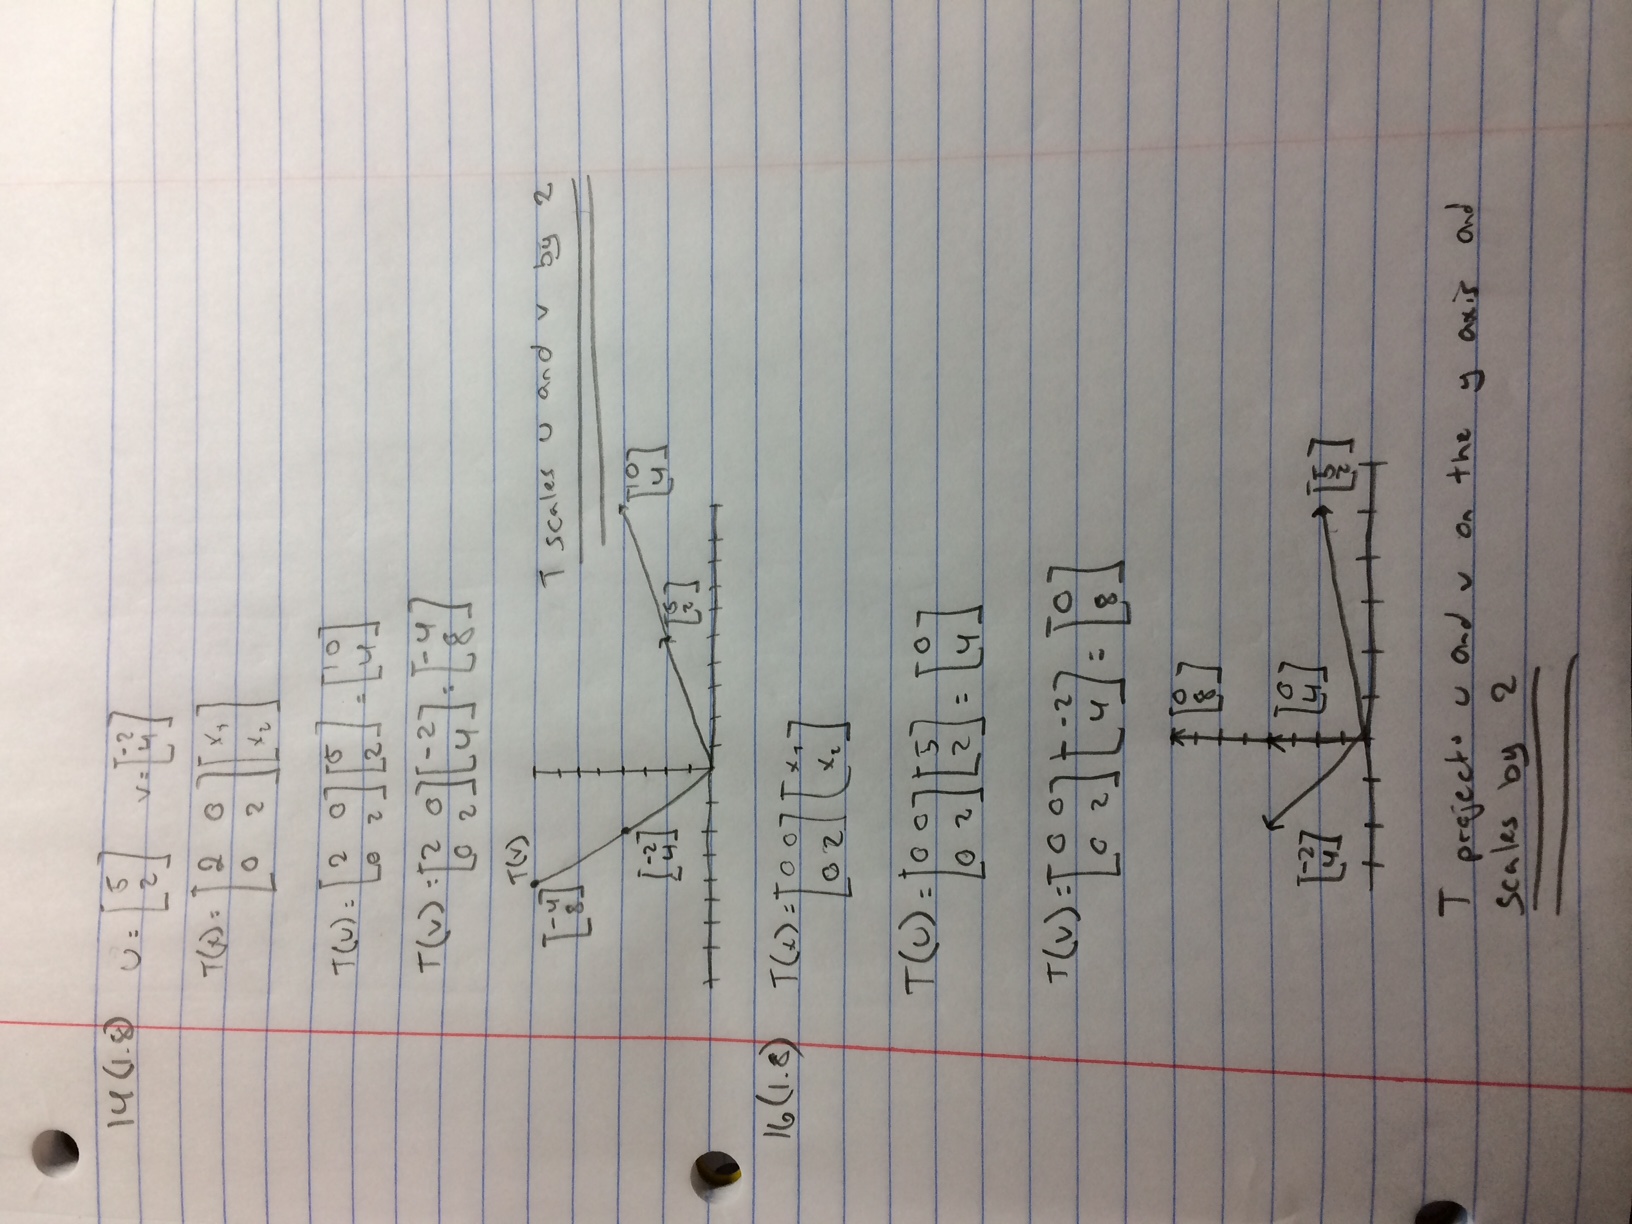 14(1.8) U = [5 2] V = [-2 4]
T(x) = [2 0 0 2] [x₁ x₂]
T(U) = [2 0 0 2] [5 2] = [10 4]
T(V) = [2 0 0 2] [-2 4] = [-4 8]
T(V)
[-4 8]
T scales U and V by 2
[-2 4]
[5 2]
[10 4]
16(1.8) T(x) = [0 0 0 2] [x₁ x₂]
T(U) = [0 0 0 2] [5 2] = [0 4]
T(V) = [0 0 0 2] [-2 4] = [0 8]
[0 8]
[-2 4]
[0 4]
[5 2]
T projects U and V on the y axis and
scales by 2